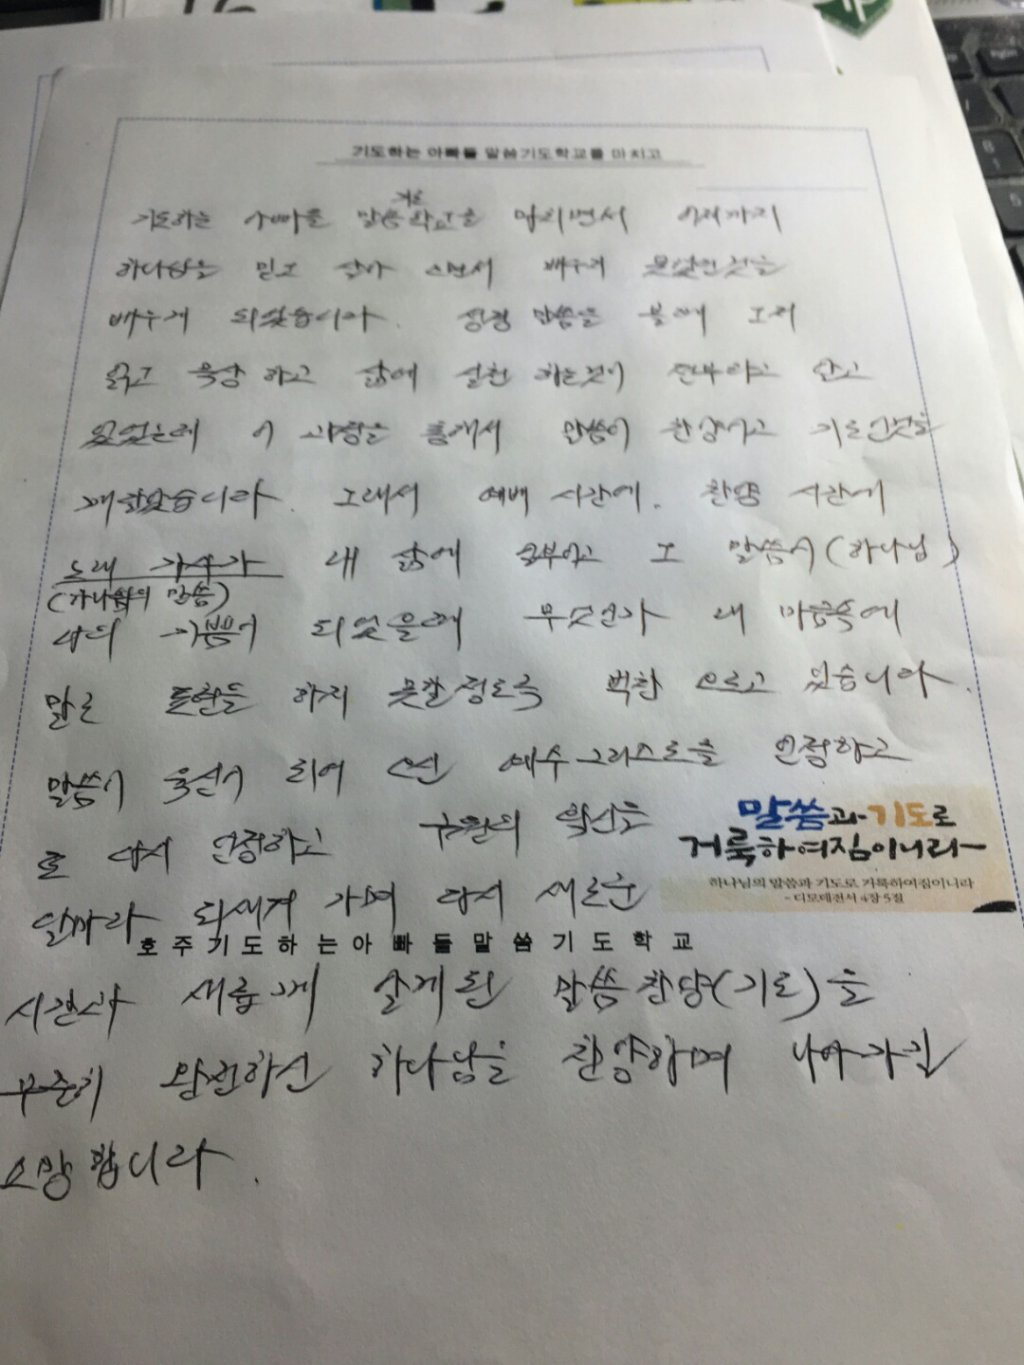 기도하는 아빠들 말씀기도학교를 마치고
기도하는 아빠들 말씀기도학교를 마치면서 이제까지
하나님을 믿고 살아 오면서 배우지 못했던것을
배우게 되었습니다. 성경 말씀을 볼때 그저
읽고 묵상 하고 삶에 실천 하는것이 전부라고 알고
있었는데 이 과정을 통해서 말씀이 찬양이고 기도인것을
깨달았습니다. 그래서 예배 시간에. 찬양 시간에
노래 가사가 내 삶에 고 그 말씀이 (하나님)
(하나님의 말씀)
나의 기쁨이 되었을때 무엇인가 내 마음속에
말로 표현을 하지 못할정도로 벅참 오르고 있습니다.
말씀이 육신이 되어 오신 예수그리스도를 인정하고
또 다시 인정하고 구원의 확신을
날마다 되새겨 가며 다시 새로운
말씀과 기도로
거룩하여짐이니라
하나님의 말씀과 기도로 거룩하여짐이니라
- 디모데전서 4장 5절
호주기도하는아빠들말씀기도학교
시간과 새롭게 알게된 말씀찬양(기도)을
꾸준히 완전하신 하나님을 찬양하며 나아가길
소망합니다.